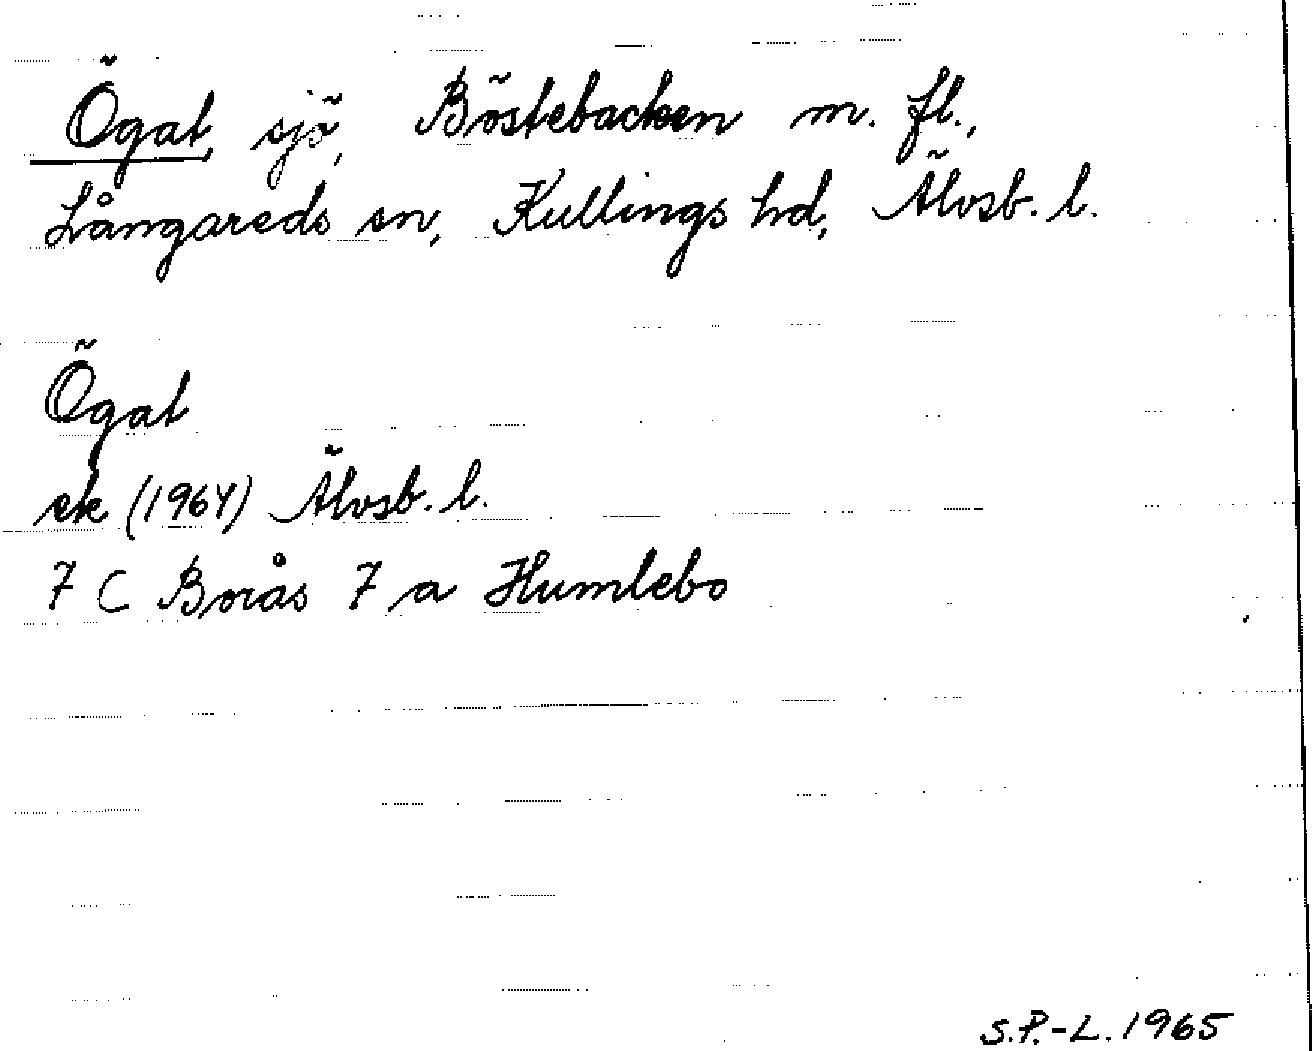 Ögat, sjö, Böstebacken m. fl.,
Långareds sn, Kullings hd, Älvsb. l.
Ögat
ek (1964) Älvsb. l.
7 C Borås 7 a Humlebo
S.P.-L. 1965